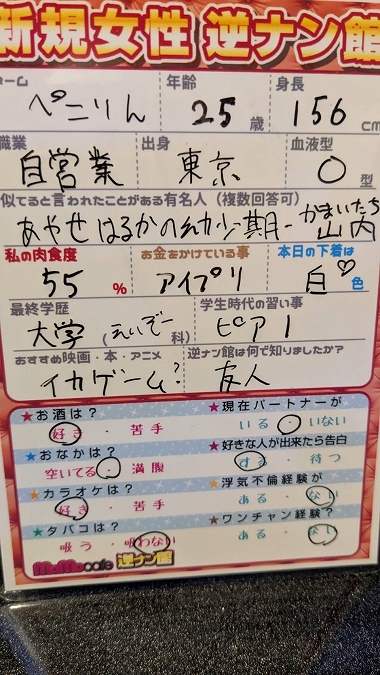 新規女性 逆ナン館
ーム 年齢 身長
ぺこりん 25 歳 156 cm
職業 出身 血液型
自営業 東京 O 型
似てると言われたことがある有名人（複数回答可）
あやせはるかの幼少期- かまいたち山内
私の肉食度 お金をかけている事 本日の下着は
55 % アイプリ 白♡ 色
最終学歴 学生時代の習い事
大学（えいぞー 科） ピアノ
おすすめ映画・本・アニメ 逆ナン館は何で知りましたか?
イカゲーム? 友人
★お酒は? ★現在パートナーが
好き・苦手 いる・いない
★おなかは? ★好きな人が出来たら告白
空いてる・満腹 する・待つ
★カラオケは? ★浮気不倫経験が
好き・苦手 ある・ない
★タバコは? ★ワンチャン経験?
吸う・吸わない ある・ない
MoMo cafe 逆ナン館